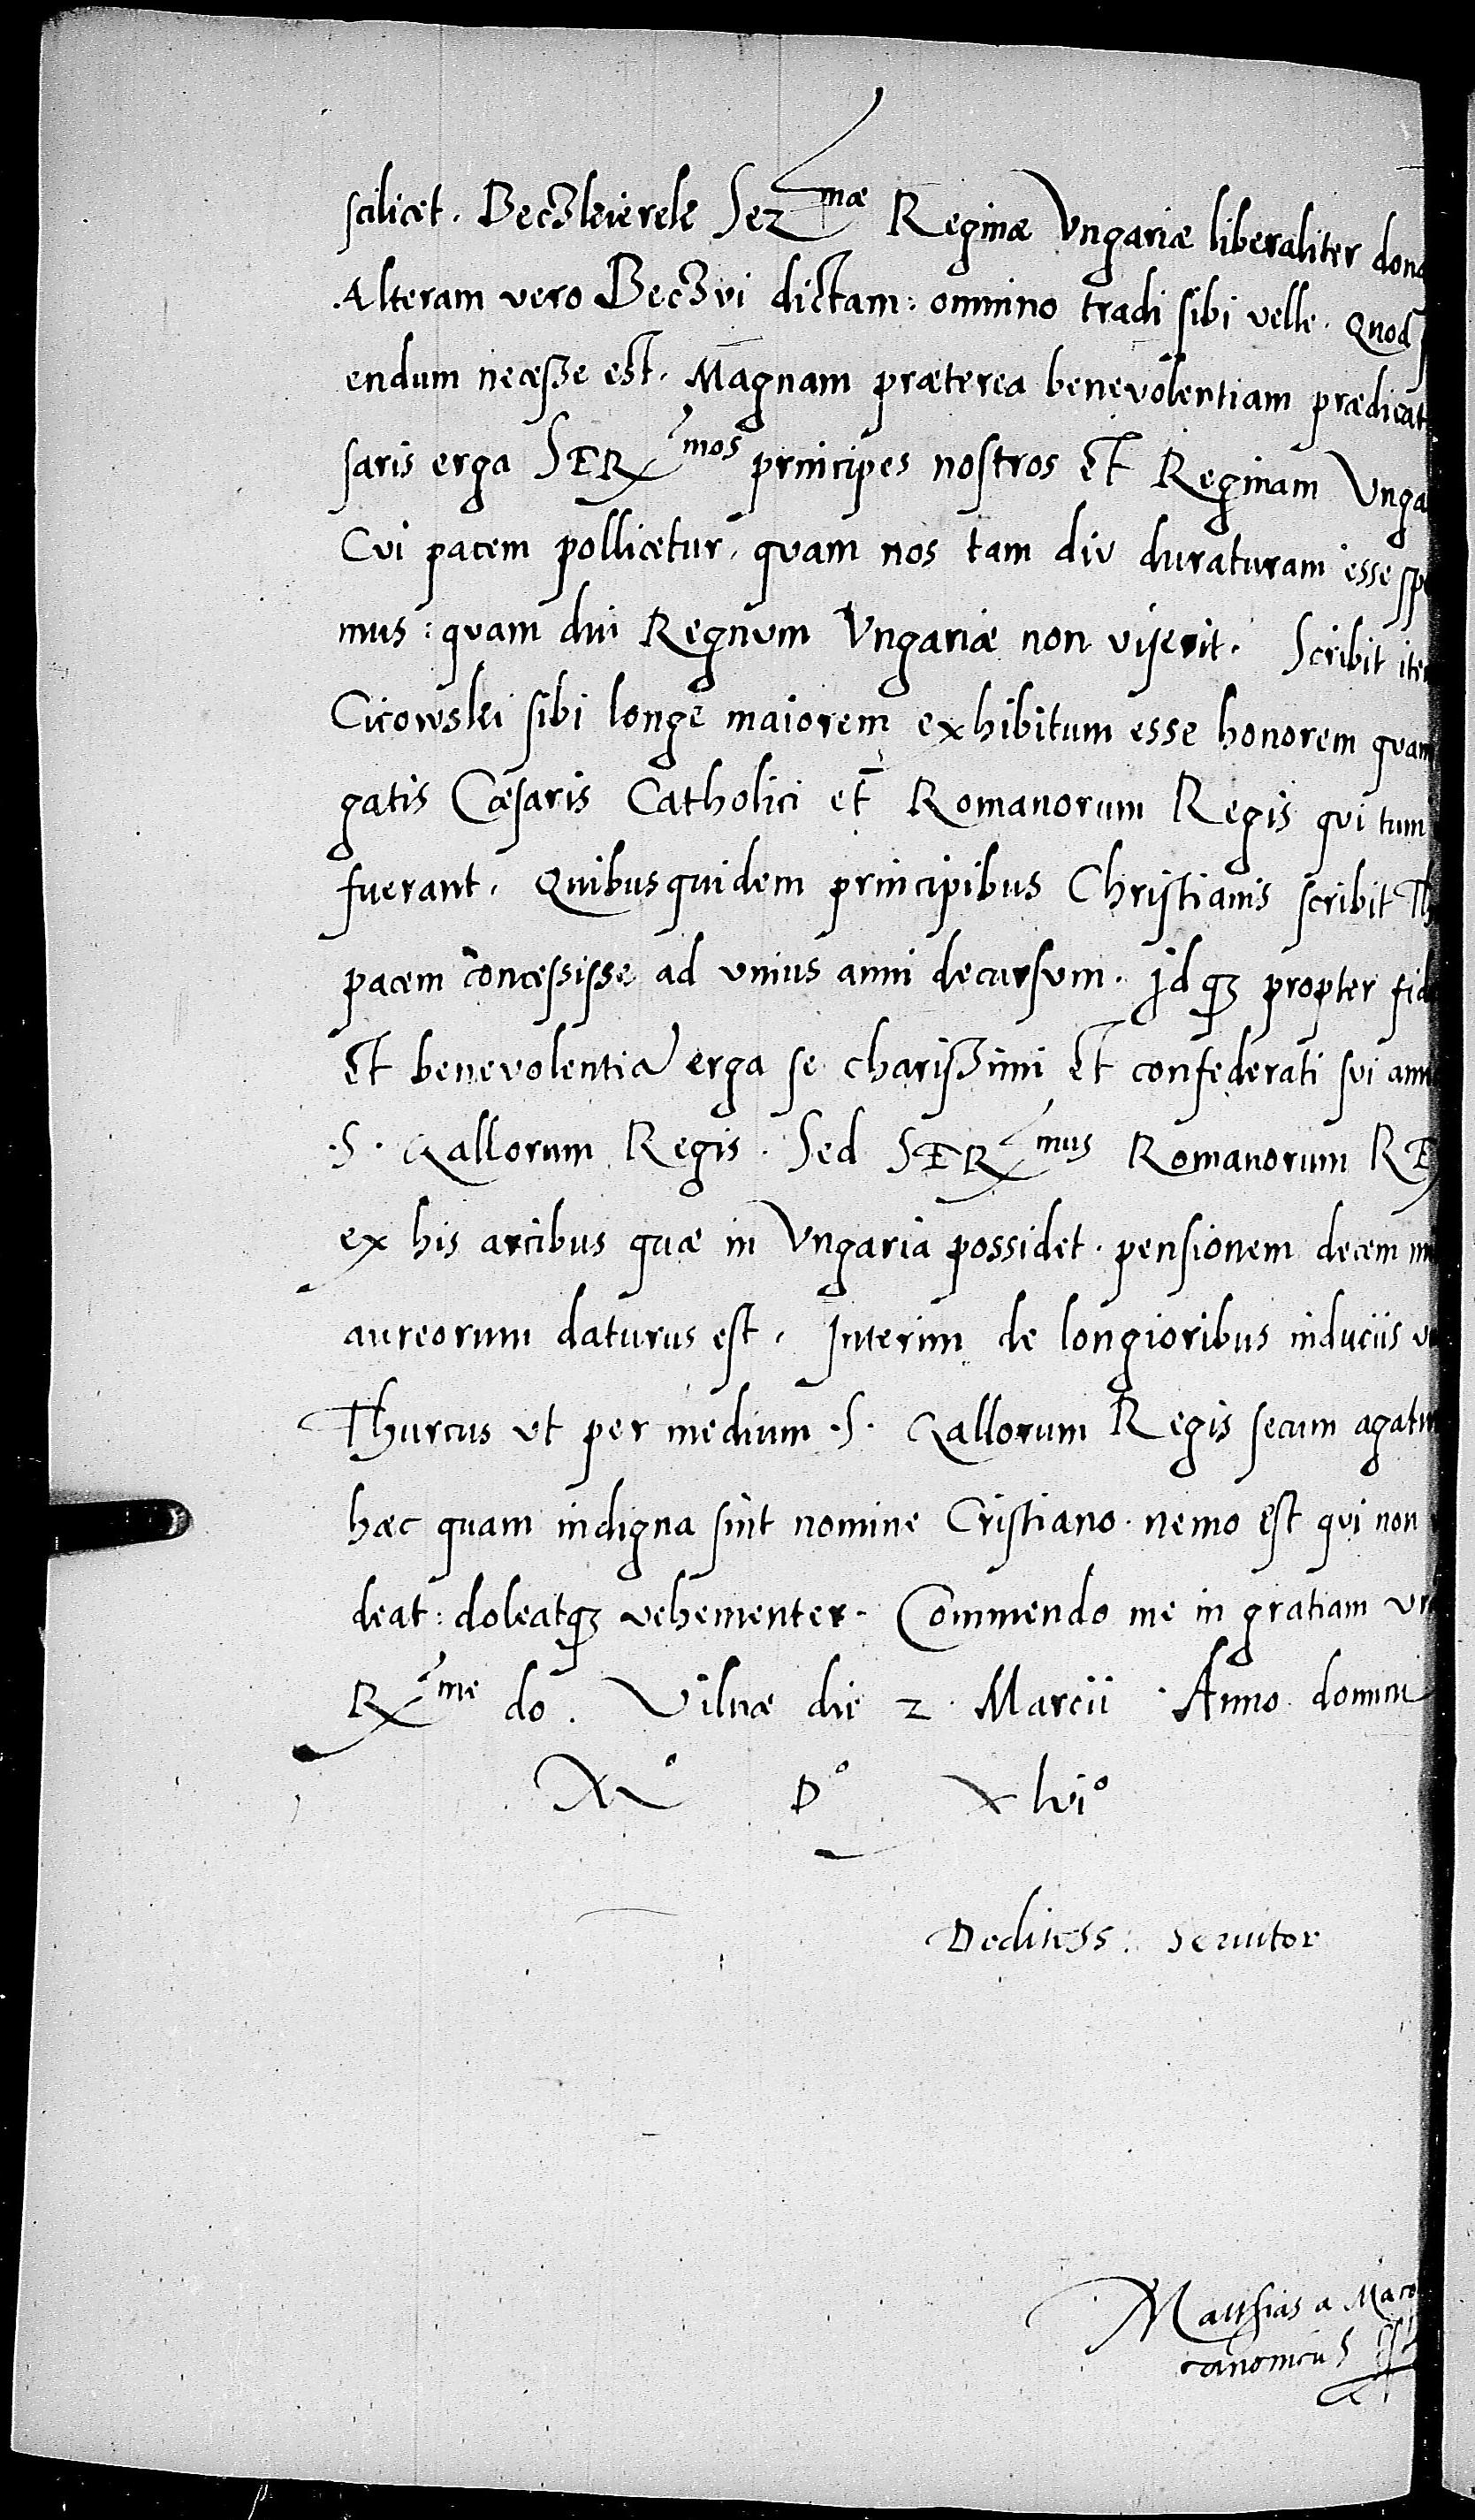 scilicet. Beczkierek Ser mæ Reginæ Vngariæ liberaliter dona
Alteram vero Beczvi dictam: omnino tradi sibi velle. Quod
endum necesse est. Magnam præterea benevolentiam prædicat
saris erga SERmos principes nostros et Reginam Vnga
Cvi pacem pollicetur, quam nos tam div duraturam esse spe
mus: quam div Regnvm Vngariæ non viserit. Scribit ite
Cicowski sibi longe maiorem exhibitum esse honorem quam
gatis Cæsaris Catholici et Romanorum Regis qvi tum
fuerant. Quibus quidem principibus Christianis scribit Th
pacem concessisse ad vnius anni decursvm. Idq3 propter fid
et benevolentiā erga se charissimi et confederati svi ami
.S. Gallorum Regis. Sed SERmus Romanorum RE
ex his arcibus quæ in Vngaria possidet. pensionem decem mi
aureorum daturus est. Interim de longioribus induciis v
Thurcus vt per medium .S. Gallorum Regis secum agatur
hæc quam indigna sint nomine Cristiano. nemo est qvi non
deat: doleatq3 vehementer. Commendo me in gratiam vr
Rme do. Vilnæ die 2. Marcii Anno domini
Mº Dº xlviº
Deditiss: Servitor
Matthias a
canonicus